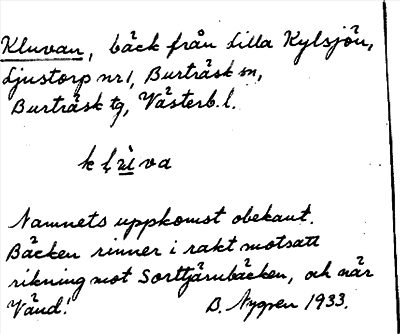 Kluvan, bäck från Lilla Kylsjön,
Ljustorp nr 1, Burträsk sn,
Burträsk tg, Västerb. l.
Namnets uppkomst obekant.
Bäcken rinner i rakt motsatt
rikning mot Sorttjärnbäcken, och när
Vänd!
B. Nygren 1933.